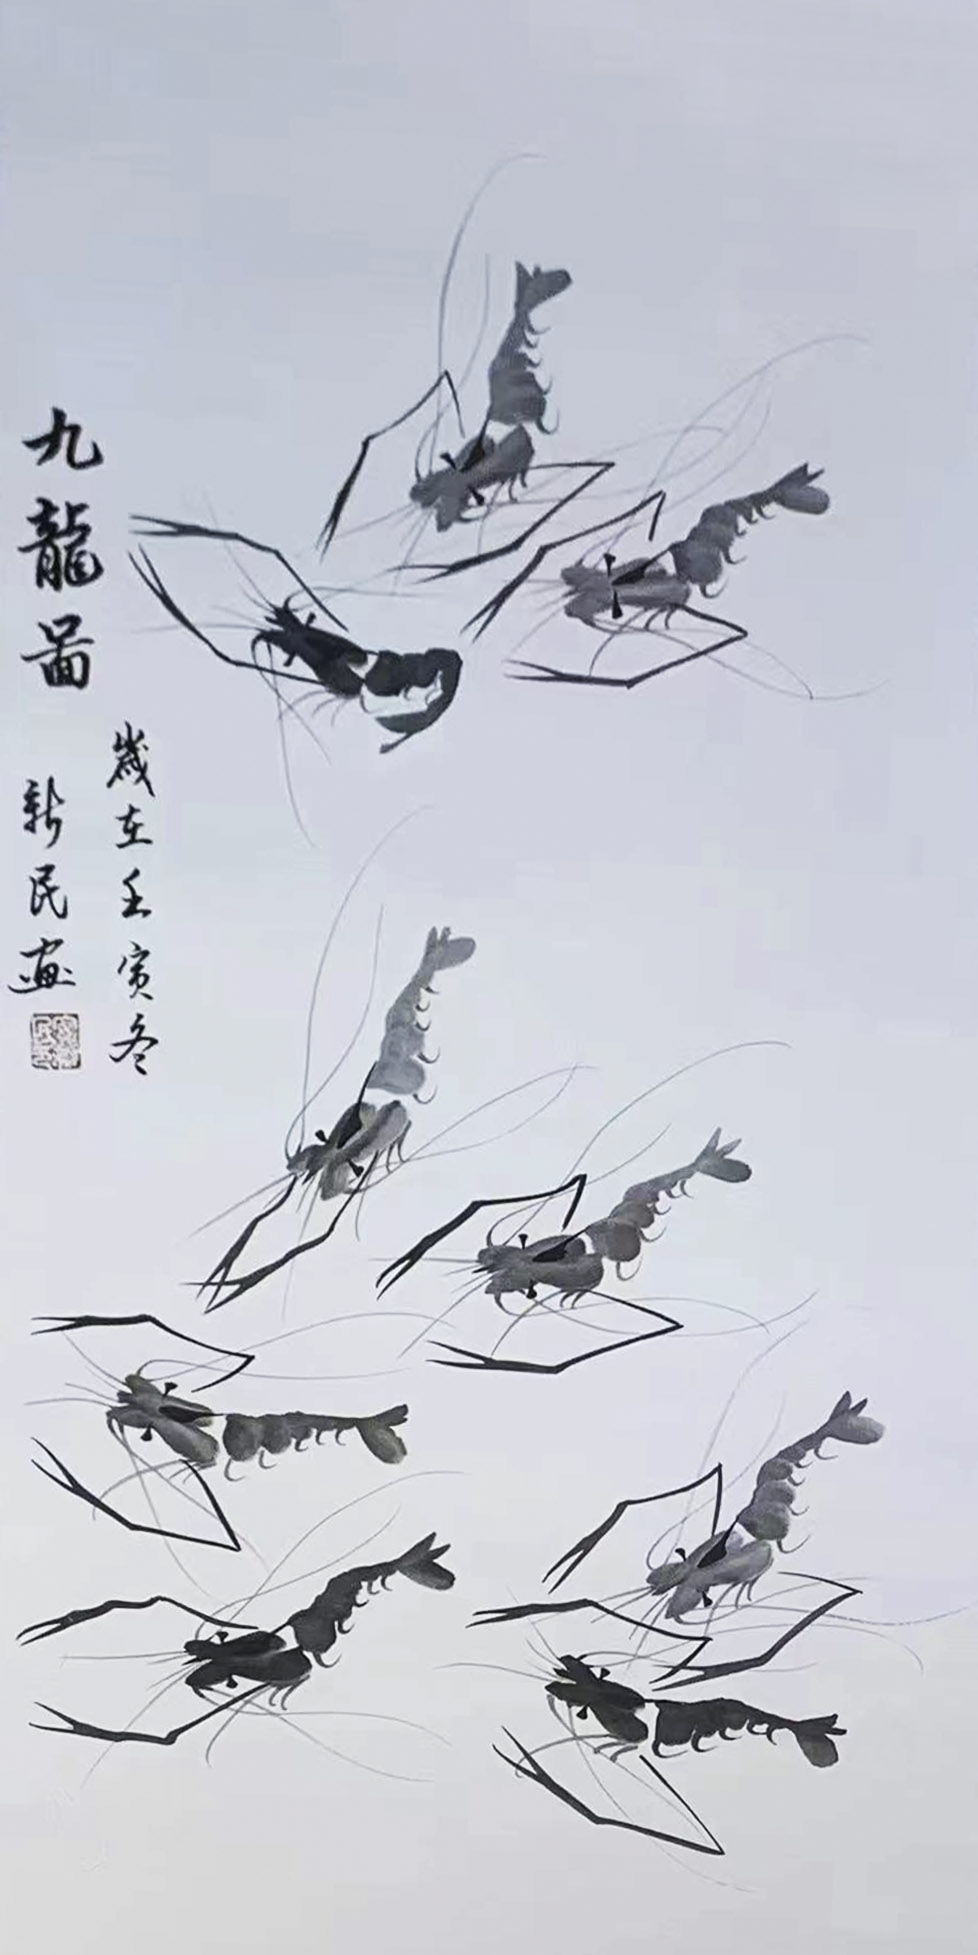 九龍啚
歲在壬寅冬
新民画